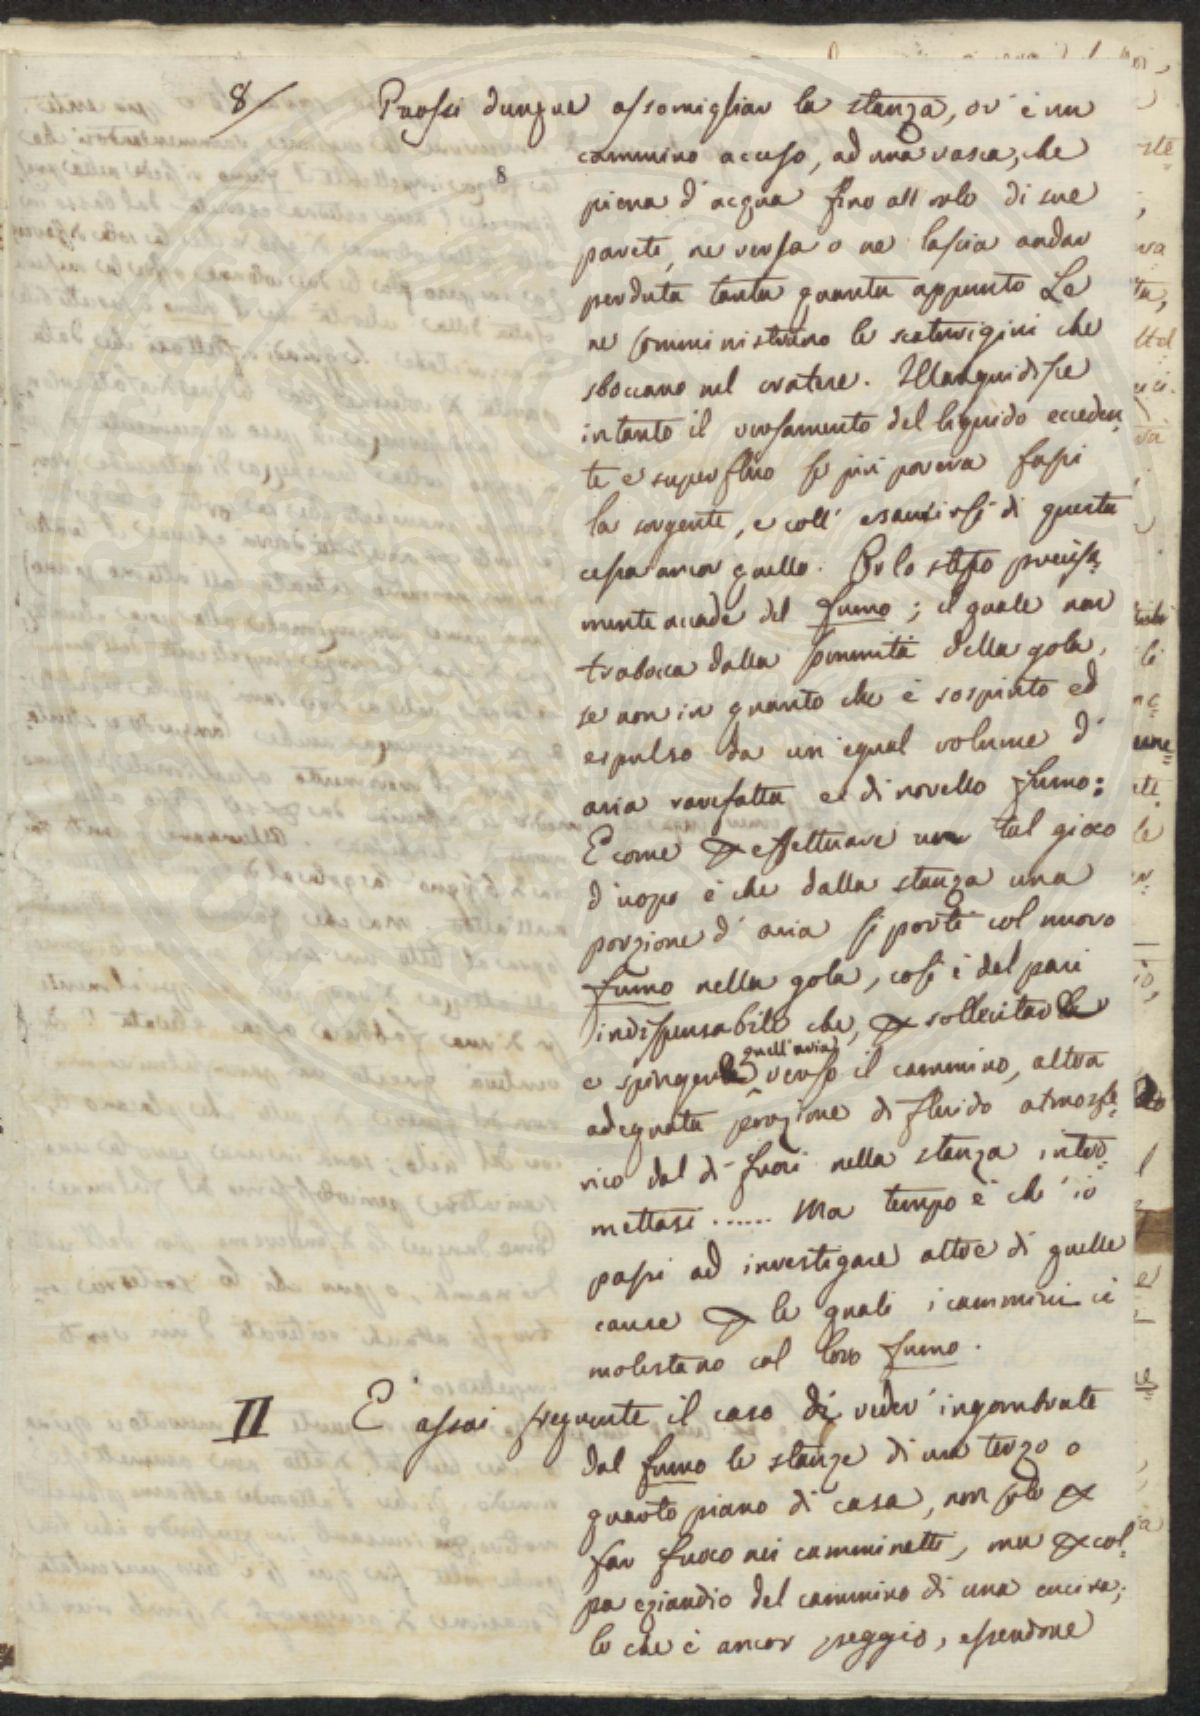 8/ Puossi dunque assomigliar la stanza, ov' è un
8
cammino acceso, ad una vasca, che
piena d' acqua fino all' orlo di sue
pareti, ne versa o ne lascia andar
perduta tanta quanta appunto Le
ne somministrano le scaturigini che
sboccano nel cratere. Illanguidisce
intanto il versamento del liquido ecceden
te e superfluo se più povera fassi
la sorgente, e coll' esaurirsi di questa
cessa ancor quello. Or lo stesso precisa=
mente accade del fumo; il quale non
trabocca dalla sommità della gola,
se non in quanto che è sospinto ed
espulso da un' egual volume d'
aria rarefatta e di novello fumo:
E come p effettuare un tal gioco
d' uopo è che dalla stanza una
porzione d' aria si porti col nuovo
fumo nella gola, così è del pari
indispensabile che, p sollecitar
quell' aria
e spinger verso il cammino, altra
adeguata porzione di fluido atmosfe=
rico dal di fuori nella stanza intro=
mettasi ...... Ma tempo è ch' io
passi ad investigare altre di quelle
cause p le quali i cammini ci
molestano col loro fumo.
II È assai frequente il caso di veder ingombrate
dal fumo le stanze di un terzo o
quarto piano di casa, non solo p
far fuoco nei camminetti, ma p col=
pa eziandio del cammino di una cucina;
lo che è ancor peggio, essendone